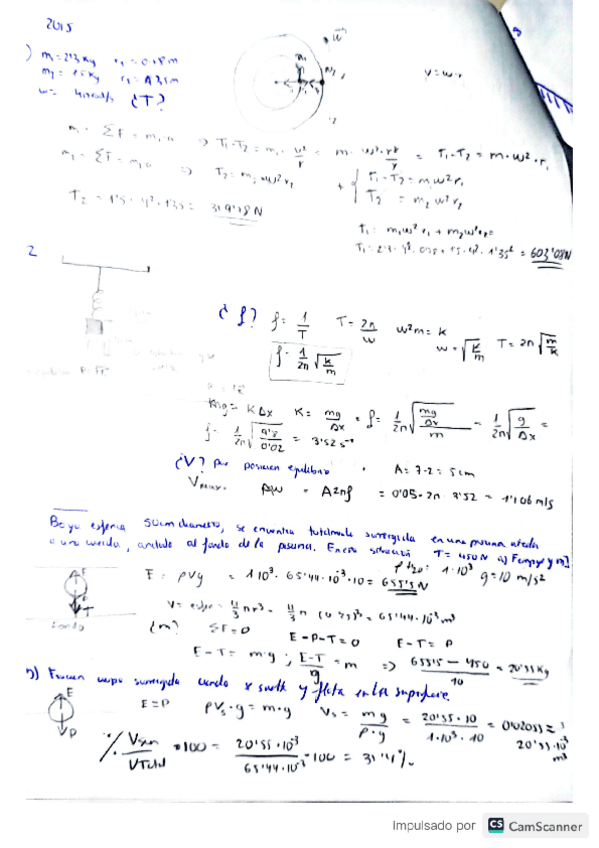 2015
m₁=2'3 Kg r₁=0'75m
m₂=1'5Kg r₂=1'35m
w= 4rad/s ¿T?
v=w·r
m₁ ΣF=m₁a => T₁-T₂=m₁·v²/r = m·w²·r²/r = T₁-T₂=m·w²·r₁
m₂ ΣF=m₂a => T₂=m₂w²r₂
+{ T₁-T₂=m₁w²r₁
T₂ = m₂w²r₂
T₂=1'5·4²·1'35=
T₁= m₁w²r₁+m₂w²r₂=
2
¿f? f=1/T T=2π/w w²m=k w=√k/m T=2π√m/k
f=1/2π √k/m
mg=KΔx K=mg/Δx = f= 1/2π √(mg/Δx)/m = 1/2π √g/Δx =
f= 1/2π √9'8/0'02 = 3'52 s⁻¹
¿V? por posicion equilibrio · A=7-2=5cm
Vmax. Aw = A2πf = 0'05·2π·3'52 = 1'106 m/s
Boya esferica 50cm diametro, se encuentra totalmente sumergida en una piscina atada
a una cuerda, anclada al fondo de la piscina. En esta situación T=450N a) Fempuje y m?
ρH₂O=1·10³ g=10 m/s²
E=ρVg = 1·10³·65'44·10⁻³·10=
V= esfera = 4/3 πr³= 4/3 π (0'25)³=65'44·10⁻³m³
Fondo
¿m? ΣF=0
E-P-T=0 E-T=P
E-T=m·g ; E-T/g = m => -450/10 = 20'55Kg
b) Fraccion cuerpo sumergida cuando se suelta y flota en la superficie.
E=P ρVs·g=m·g Vs= mg/ρ·g = 20'55·10/1·10³·10 =
20'55·10⁻³ m³
% Vsum/VTotal ·100= 20'55·10⁻³/65'44·10⁻³ ·100 = 31'4%.
Impulsado por CS CamScanner